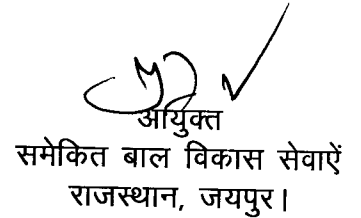 आयुक्त
समेकित बाल विकास सेवाऐं
राजस्थान, जयपुर।